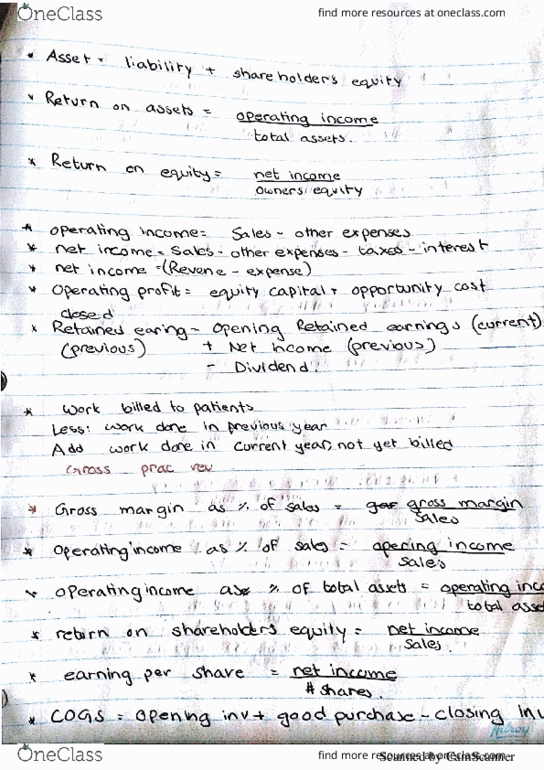 OneClass
find more resources at oneclass.com
* Asset = liability + shareholders equity
* Return on assets = operating income
total assets.
* Return on equity = net income
owners equity
* operating income = Sales - other expenses
* net income = Sales - other expenses - taxes - interest
* net income = (Revene - expense)
* Operating profit = equity capital * opportunity cost
closed
* Retained earing - Opening Retained earnings (current)
(previous) + Net Income (previous)
- Dividend.
* Work billed to patients
Less: work done in previous year
Add work done in current year, not yet billed
Gross prac rev
* Gross margin as % of sales = gross margin
Sales
* Operating income as % of sales = opening income
Sales
* operating income as % of total assets = operating inco
total asse
* return on shareholders equity = net income
Sales.
* earning per share = net income
# shares.
* COGS = Opening inv + good purchase - closing inv
OneClass
find more resources at oneclass.com
Scanned by CamScanner